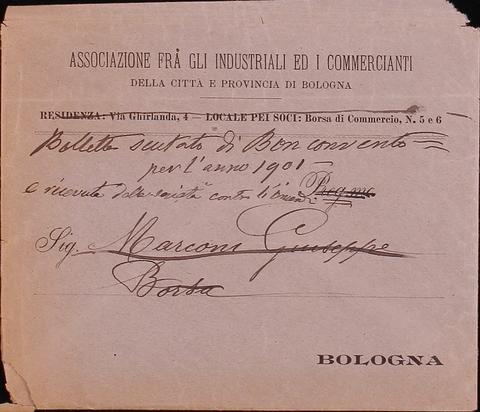 ASSOCIAZIONE FRÀ GLI INDUSTRIALI ED I COMMERCIANTI
DELLA CITTÀ E PROVINCIA DI BOLOGNA
RESIDENZA: Via Ghirlanda, 4 — LOCALE PEI SOCI: Borsa di Commercio, N. 5 e 6
Bollette scutato di Bonconvento
per l'anno 1901
e ricevuta della società contro l'incendi Preg.mo
Sig. Marconi Giuseppe
Borsa
BOLOGNA